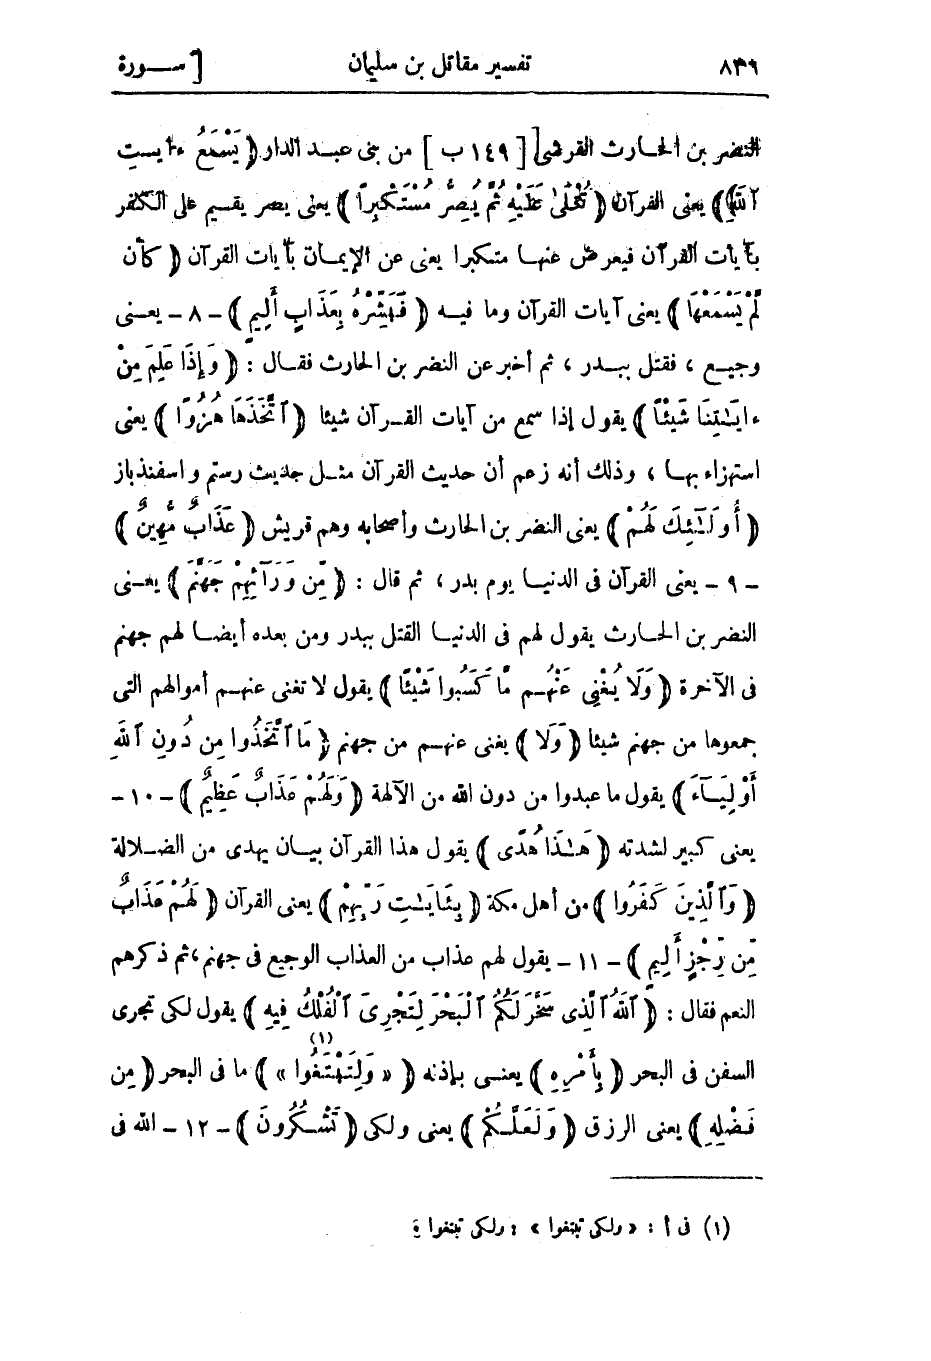 ٨٣٦ تفسير مقاتل بن سليمان [ ســورة
النضر بن الحــارث القرشى [ ١٤٩ ب ] من بنى عبـد الدار ( يَسْمَعُ ءايـتِ
ٱللهِ ) يعنى القرآن ( تُتْلَىٰ عَلَيْهِ ثُمَّ يُصِرُّ مُسْتَكْبِرًا ) يعنى يصر يقـيم على الكفر
بآيات القرآن فيعرض عنهـا متكبرا يعنى عن الإيمـان بآيات القرآن ( كأن
لَّمْ يَسْمَعْهَا ) يعنى آيات القرآن وما فيــه ( فَبَشِّرْهُ بِعَذَابٍ أَلِيمٍ ) - ٨ - يعــنى
وجيـع ، فقتل ببـدر ، ثم أخبر عن النضر بن الحارث فقـال : ( وَإِذَا عَلِمَ مِنْ
ءايَـٰتِنَا شَيْئًا ) يقول إذا سمع من آيات القــرآن شيئا ( ٱتَّخَذَهَا هُزُوًا ) يعنى
استهزاء بهـا ، وذلك أنه زعم أن حديث القرآن مثــل حديث رستم و اسفندباز
( أُولَـٰئِكَ لَهُمْ ) يعنى النضر بن الحارث وأصحابه وهم قريش ( عَذَابٌ مُّهِينٌ )
- ٩ - يعنى القرآن فى الدنيـا يوم بدر ، ثم قال : ( مِّن وَرَآئِهِمْ جَهَنَّمُ ) يعــنى
النضر بن الحـارث يقول لهم فى الدنيـا القتل ببدر ومن بعده أيضـا لهم جهنم
فى الآخرة ( وَلَا يُغْنِى عَنْهُـم مَّا كَسَبُوا شَيْئًا ) يقول لا تغنى عنهـم أموالهم التى
جمعوها من جهنم شيئا ( وَلَا ) يغنى عنهـم من جهنم ( مَا ٱتَّخَذُوا مِن دُونِ ٱللهِ
أَوْلِيَـآءَ ) يقول ما عبدوا من دون الله من الآلهة ( وَلَهُمْ عَذَابٌ عَظِيمٌ ) - ١٠ -
يعنى كبير لشدته ( هَـٰذَا هُدًى ) يقول هذا القرآن بيـان يهدى من الضـلالة
( وَٱلَّذِينَ كَفَرُوا ) من أهل مكة ( بِئَايَـٰتِ رَبِّهِمْ ) يعنى القرآن ( لَهُمْ عَذَابٌ
مِّن رِّجْزٍ أَلِيمٍ ) - ١١ - يقول لهم عذاب من العذاب الوجيع فى جهنم ، ثم ذكرهم
النعم فقال : ( ٱللهُ ٱلَّذِى سَخَّرَ لَكُمُ ٱلْبَحْرَ لِتَجْرِىَ ٱلْفُلْكُ فِيهِ ) يقول لكى تجرى
السفن فى البحر ( بِأَمْرِهِ ) يعنــى بإذنه ( « وَلِتَبْتَغُوا » (١) ) ما فى البحر ( مِن
فَضْلِهِ ) يعنى الرزق ( وَلَعَلَّـكُمْ ) يعنى ولكى ( تَشْـكُرُونَ ) - ١٢ - الله فى
(١) فى أ : « ولكى تبتغوا » ؛ ولكى تبتغوا